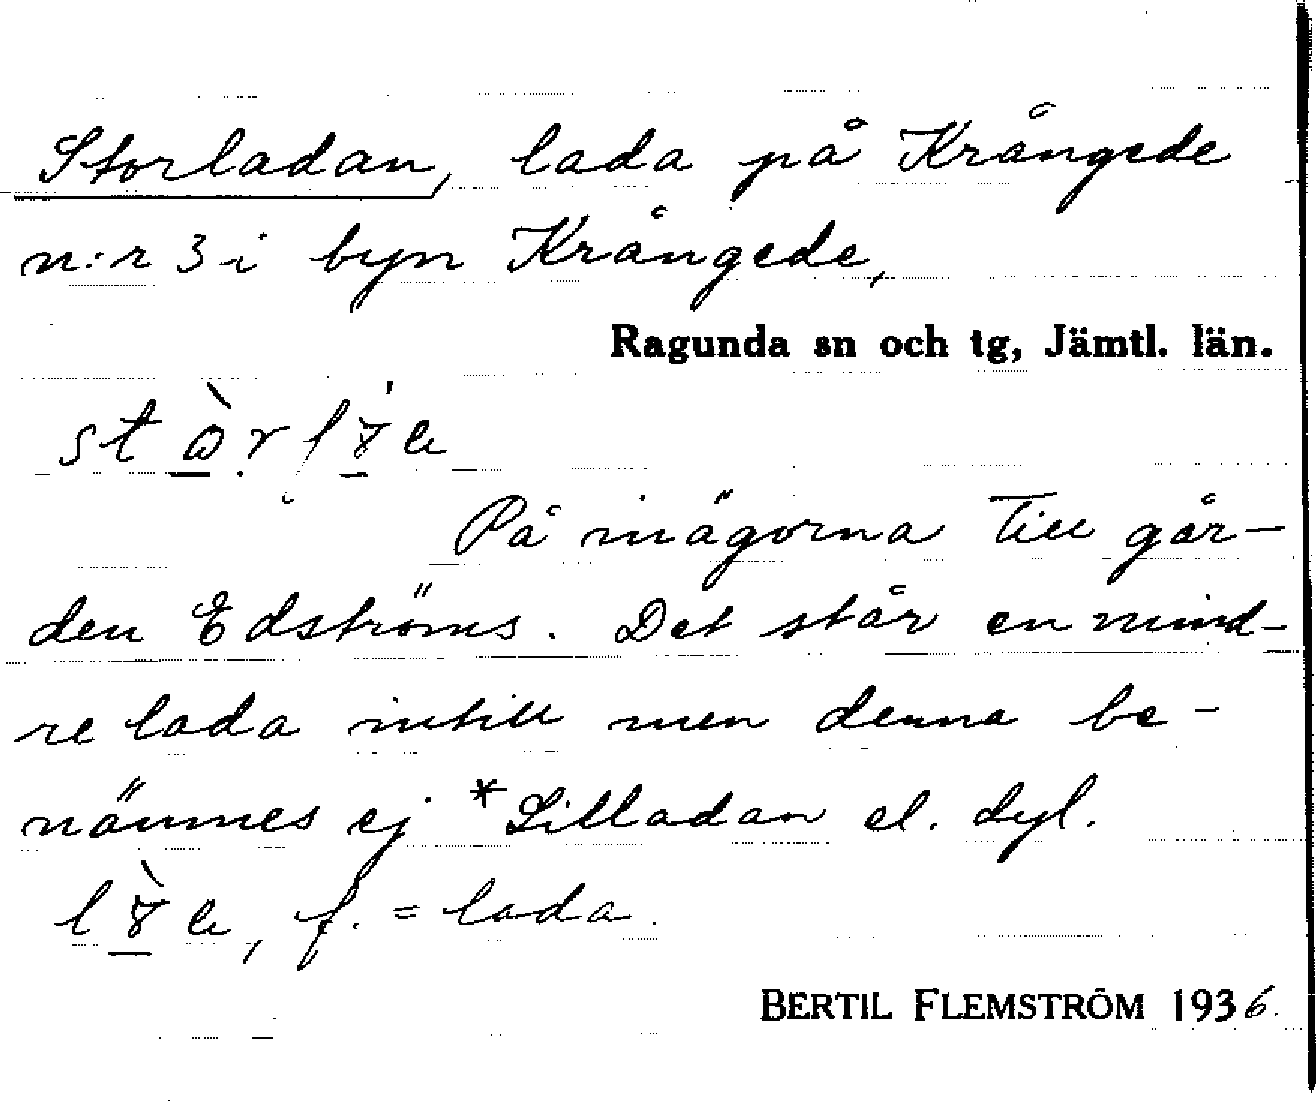 Storladan, lada på Krångede
n:r 3 i byn Krångede,
Ragunda sn och tg, Jämtl. län.
På inägorna till går-
den Edströms. Det står en mind-
re lada intill men denna be-
nämnes ej *Lilladan el. dyl.
f. = lada.
BERTIL FLEMSTRÖM 1936.